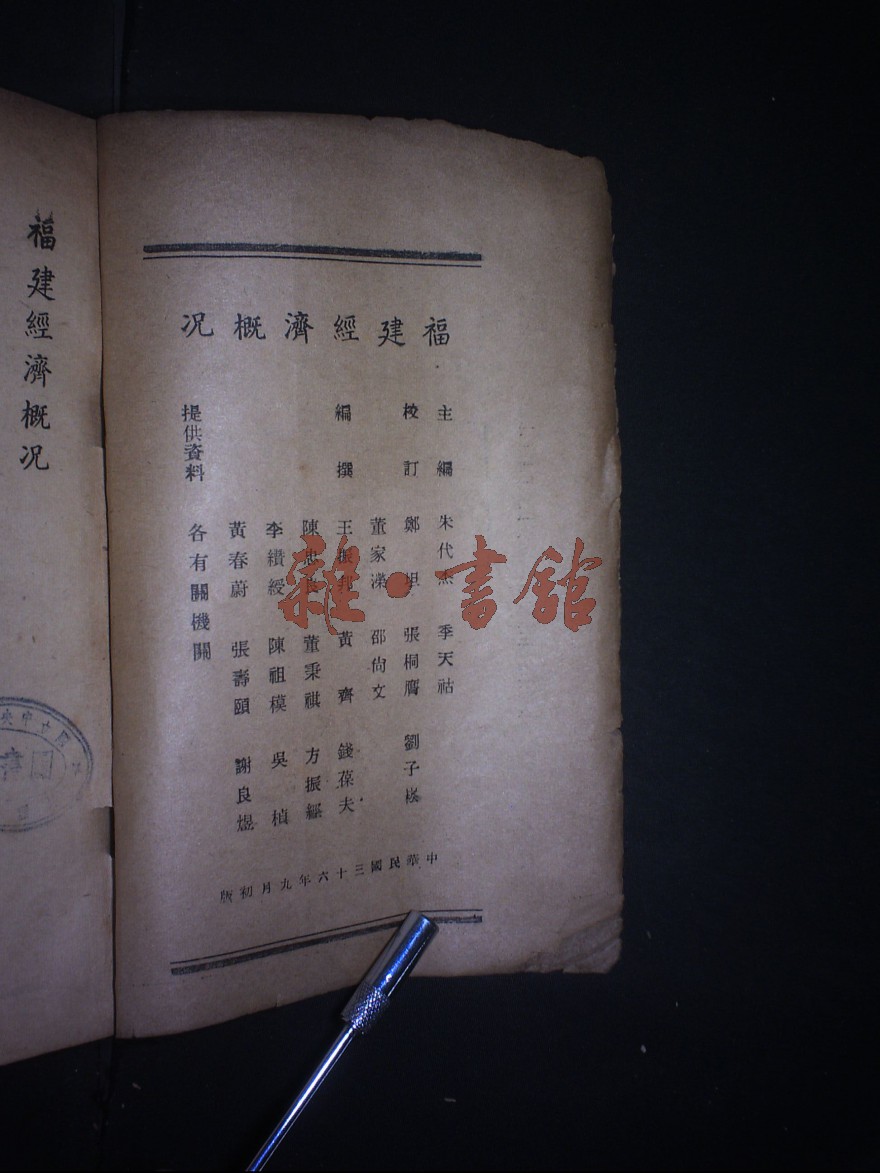 福建經濟概况
主編 朱代杰 季天祜
校訂 鄭坦 張桐膺 劉子崧
董家濚 邵尙文
編撰 王振邦 黃齊 錢葆夫
陳 董秉祺 方振經
李纘綬 陳祖模 吳楨
黃春蔚 張壽頤 謝良煜
提供資料 各有關機關
中華民國三十六年九月初版
福建經濟概况
雜·書館